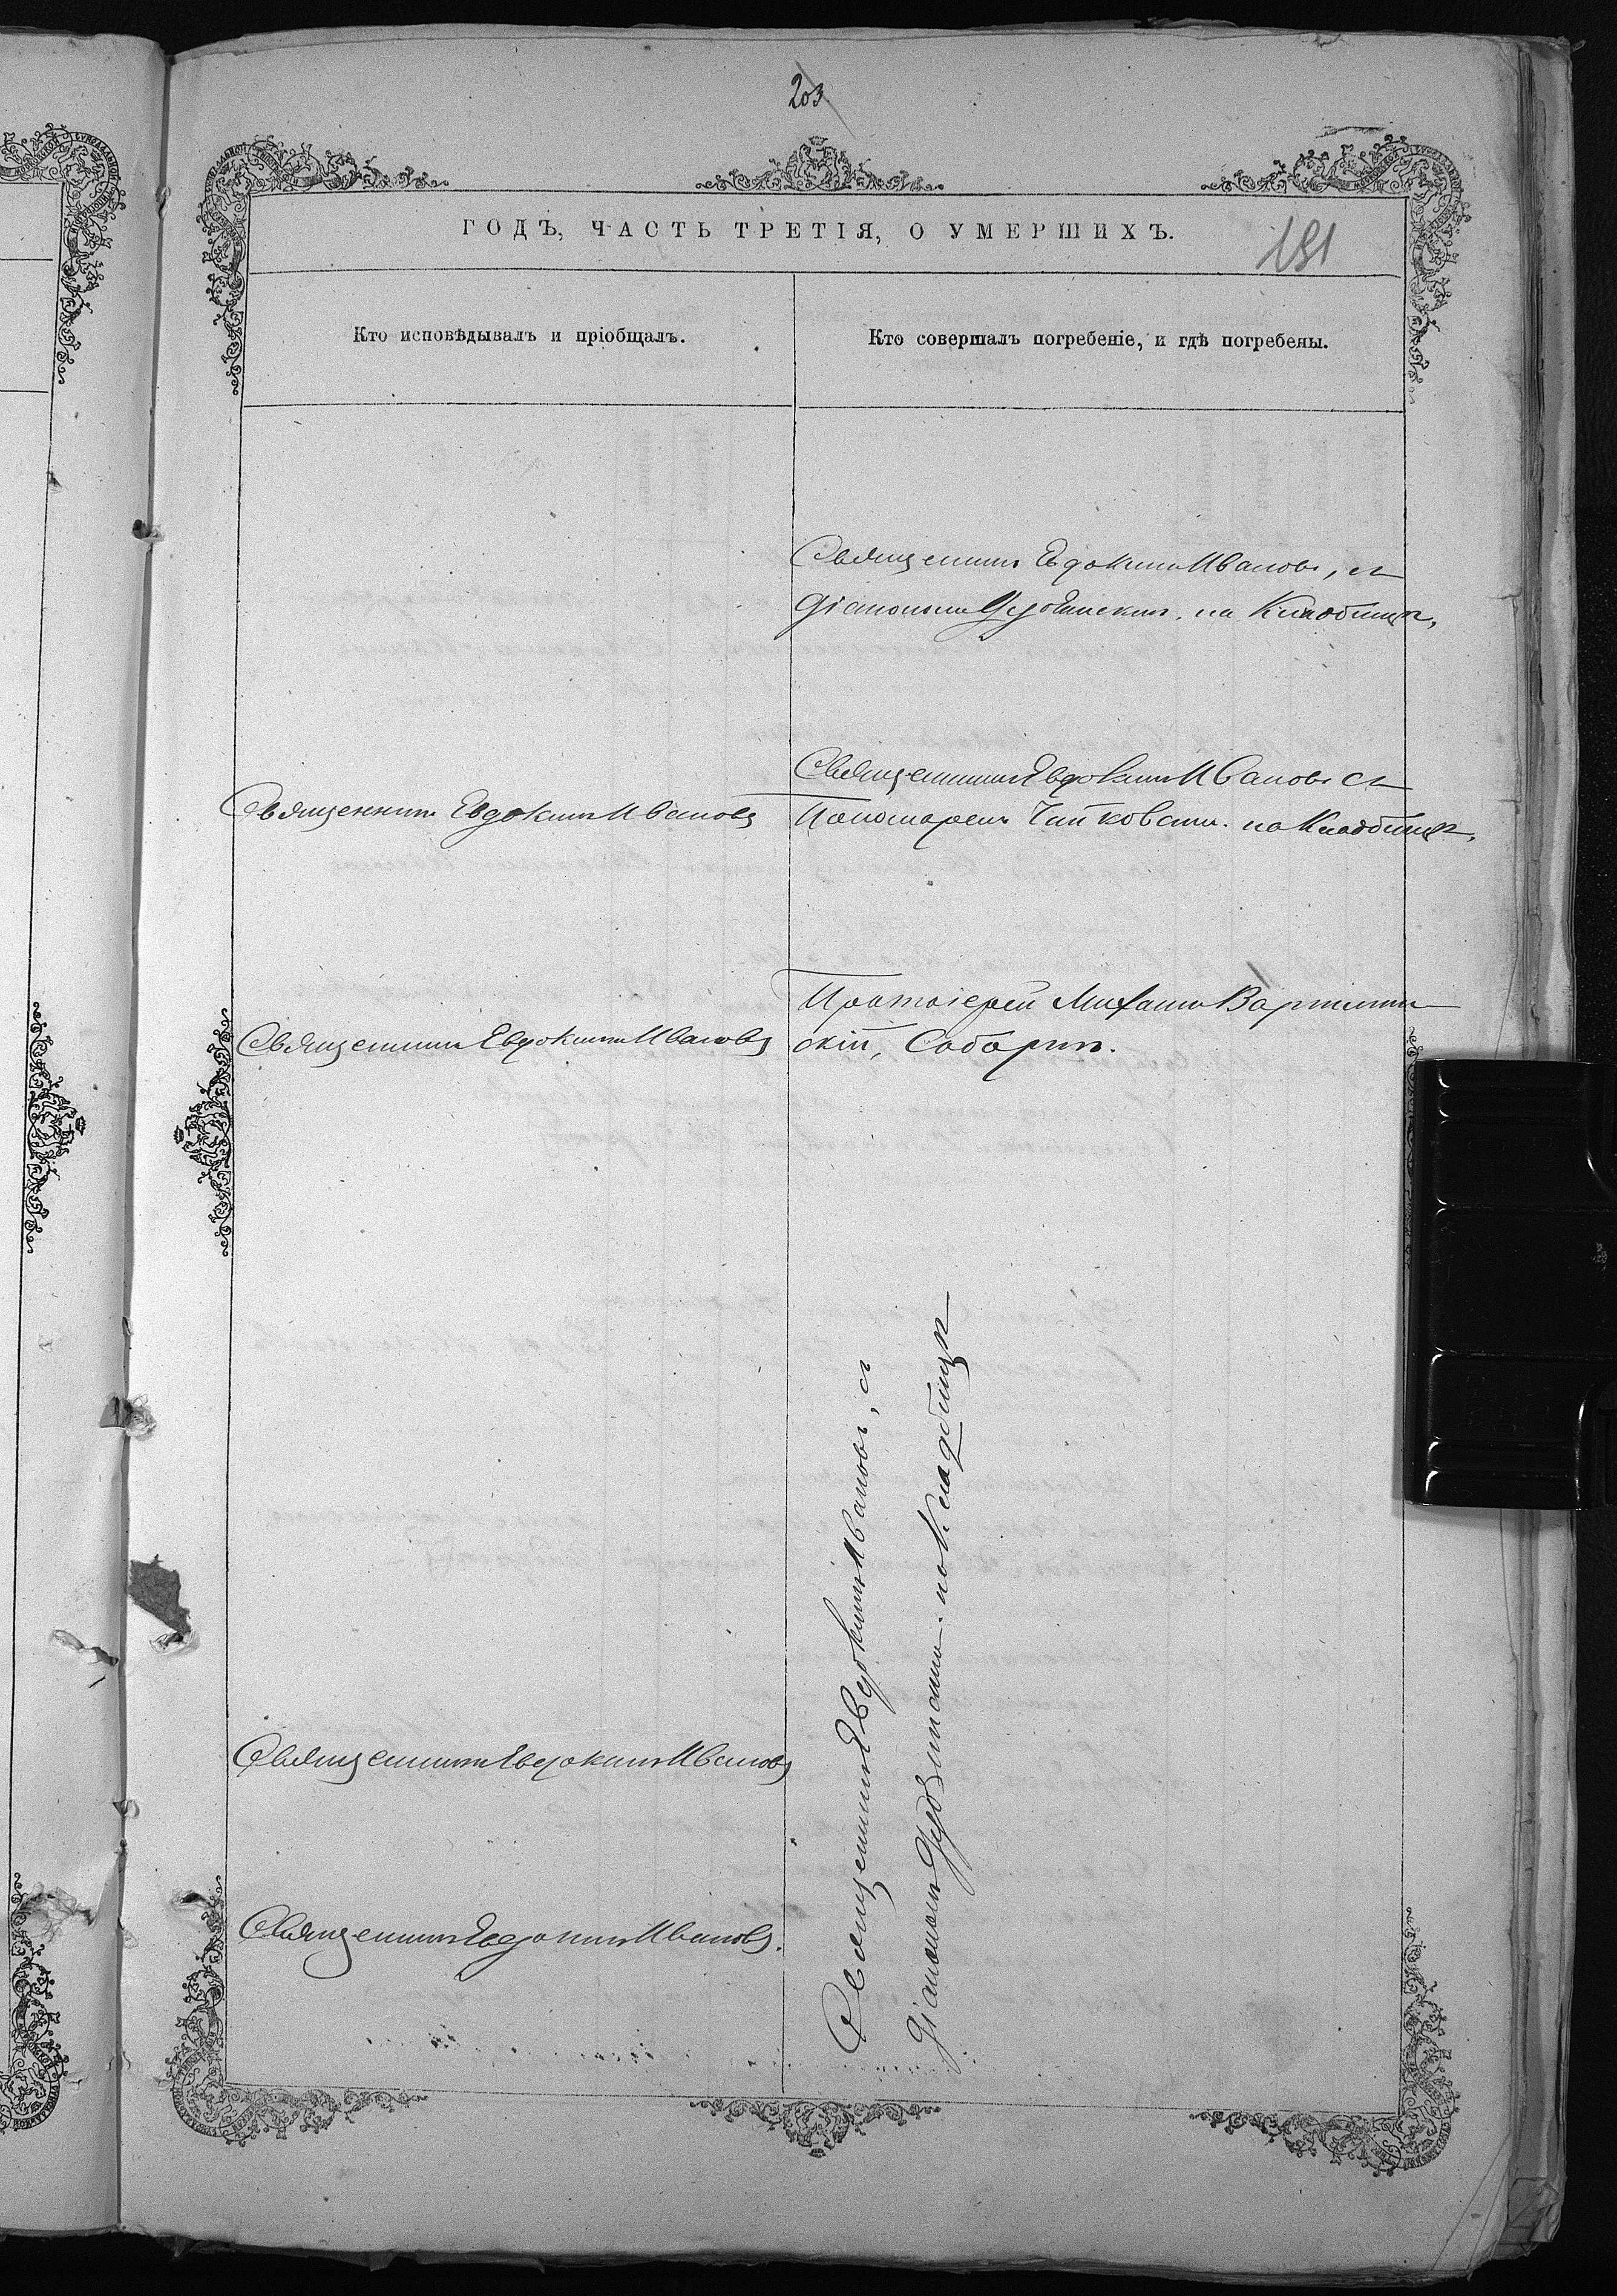 203
ГОДЪ, ЧАСТЬ ТРЕТІЯ, О УМЕРШИХЪ.
191
Кто исповѣдывалъ и пріобщалъ.
Кто совершалъ погребеніе, и гдѣ погребены.
Священникъ Евдокимъ Ивановъ, съ
діакономъ на Кладбищѣ,
Священникъ Евдокимъ Ивановъ съ
Священникъ Евдокимъ Ивановъ
Пономаремъ на Кладбищѣ,
Протоіерей Михаилъ
Священникъ Евдокимъ Ивановъ
скій, Соборнѣ.
Священникъ Евдокимъ Ивановъ, съ
діакономъ на Кладбищѣ
Священникъ Евдокимъ Ивановъ
Священникъ Евдокимъ Ивановъ.